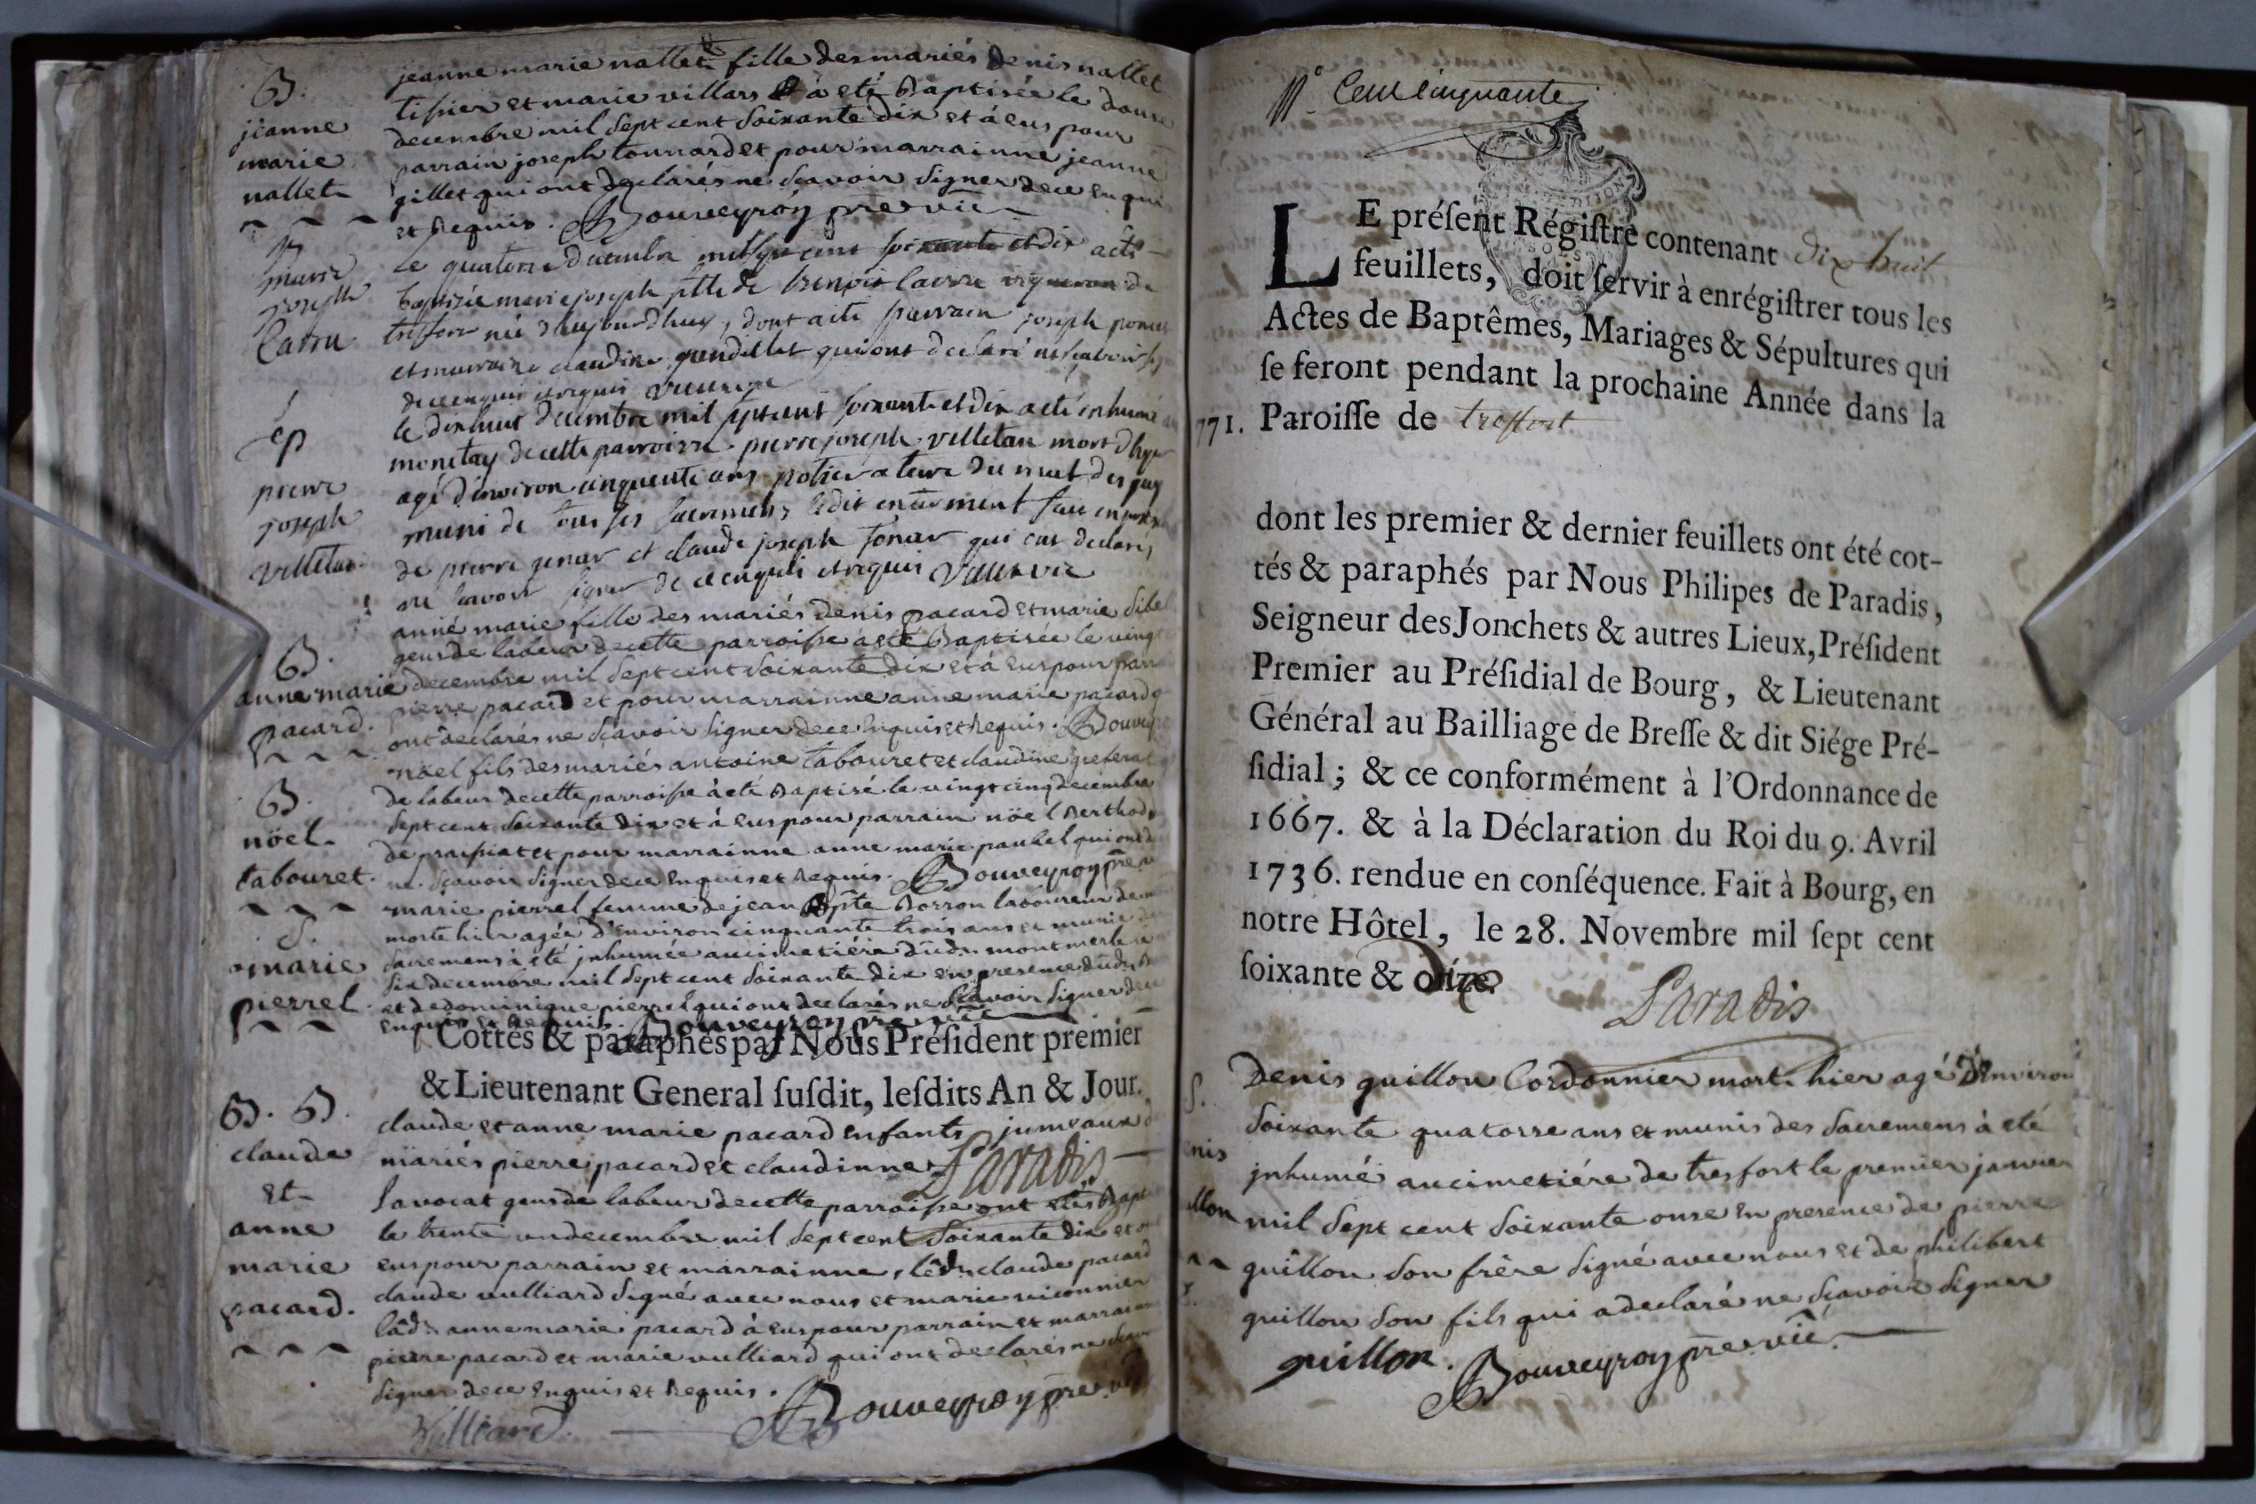 B.
jeanne
marie
nallet
jeanne marie nallet fille des mariés denis nallet
tissier et marie villars à eté Baptisée le douze
decembre mil sept cent soixante dix et à eus pour
parrain joseph tournard et pour marrainne jeanne
gillet qui ont declarés ne sçavoir signer de ce enquis
et Requis. Bouveyroy pre vic
B
marie
joseph
le quatorze decembre mil sept cent soixante et dix a eté
baptizée marie joseph fille de benoit vigneron de
tresfort née d'aujourdhuy, dont acte parrain joseph
et marraine claudine qui ont declaré ne sçavoir
de ce enquis et requis
S
pierre
joseph
villetan
le dix huit decembre mil sept cent soixante et dix a eté inhumé
monetay de cette parroisse pierre joseph villetan mort d'hyer
agé d'environ cinquante ans potier a terre
muni de tous ses sacremens ledit enterrement fait en
de pierre et claude joseph qui ont declarés
ne savoir signer de ce enquis et requis
B.
anne marie
pacard.
anne marie fille des mariés denis pacard et marie
gens de labeur de cette parroisse à eté Baptisée le vingt
decembre mil sept cent soixante dix et à eus pour
pierre pacard et pour marrainne anne marie pacard
ont declarés ne sçavoir signer de ce enquis et Requis. Bouveyroy
B.
nöel
tabouret.
nöel fils des mariés antoine tabouret et claudine
de labeur de cette parroisse à eté Baptisé le vingt cinq decembre
sept cent soixante dix et à eus pour parrain nöel
de et pour marrainne anne marie qui ont
ne sçavoir signer de ce enquis et Requis. Bouveyroy pre
S.
marie
pierrel.
marie pierrel femme de jean Bpte Borron laboureur
morte hier agée d'environ cinquante trois ans et munie
sacremens à eté jnhumée au cimetiére
six decembre mil sept cent soixante dix en presence
et de dominique pierrel qui ont declarés ne sçavoir signer de
enquis et Requis. Bouveyroy pre vic
Cottés & paraphés par Nous Préſident premier
& Lieutenant General ſuſdit, leſdits An & Jour.
B. B.
claude
et
anne
marie
pacard.
claude et anne marie pacard enfants jumeaux
mariés pierre pacard et claudinne
Paradis
savocat gens de labeur de cette parroisse ont etés
le trente un decembre mil sept cent soixante dix et
eus pour parrain et marrainne, claude pacard
claude vulliard signé avec nous et marie
anne marie pacard à eus pour parrain et
pierre pacard et marie vulliard qui ont declarés ne
signer de ce enquis et Requis.
Vulliard. Bouveyroy pre vic
Cent cinquante
LE préſent Régiſtre contenant dix huit
feuillets, doit ſervir à enrégiſtrer tous les
Actes de Baptêmes, Mariages & Sépultures qui
ſe feront pendant la prochaine Année dans la
771. Paroiſſe de treffort
dont les premier & dernier feuillets ont été cot-
tés & paraphés par Nous Philipes de Paradis,
Seigneur des Jonchets & autres Lieux, Préſident
Premier au Préſidial de Bourg, & Lieutenant
Général au Bailliage de Breſſe & dit Siége Pré-
ſidial; & ce conformément à l'Ordonnance de
1667. & à la Déclaration du Roi du 9. Avril
1736. rendue en conſéquence. Fait à Bourg, en
notre Hôtel, le 28. Novembre mil ſept cent
ſoixante & Dix
Paradis
S.
enis
illon
Denis guillon Cordonnier mort hier agé D'Environ
soixante quatorse ans et munis des sacremens à eté
jnhumé au cimetiére de tresfort le premier janvier
mil sept cent soixante onse en presence de pierre
guillon son frère signé avec nous et de philibert
guillon son fils qui a declaré ne sçavoir signer
guillon. Bouveyroy pre vic